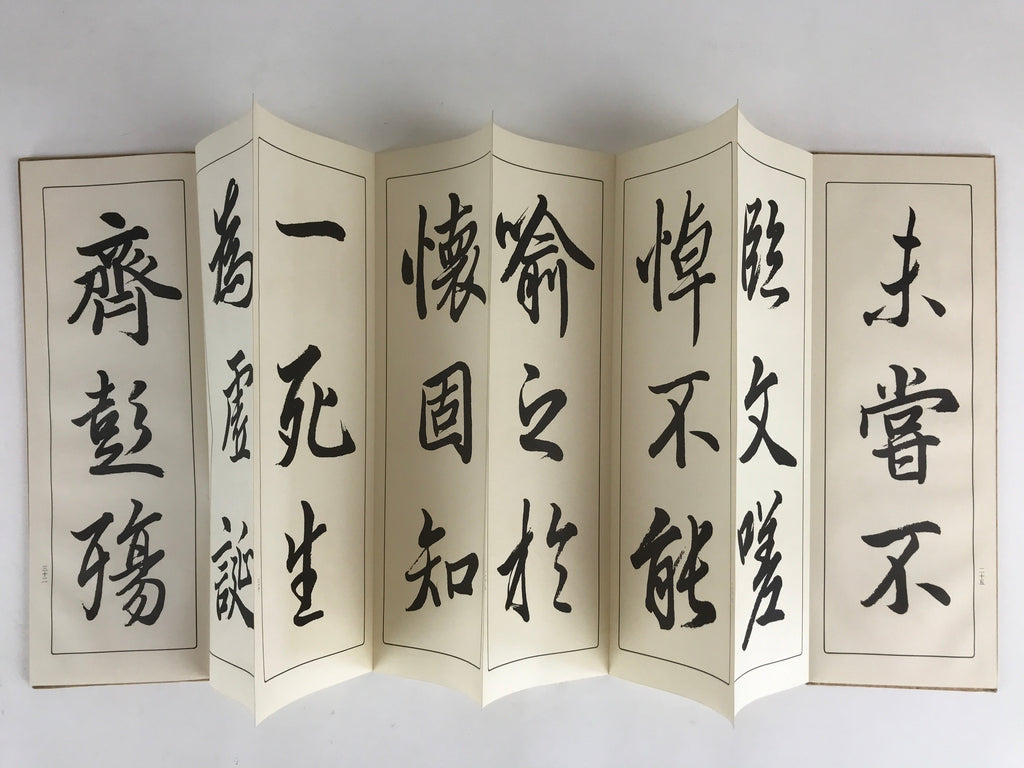 未嘗不
臨文嗟
悼不能
喻之於
懷固知
一死生
為虛誕
齊彭殤